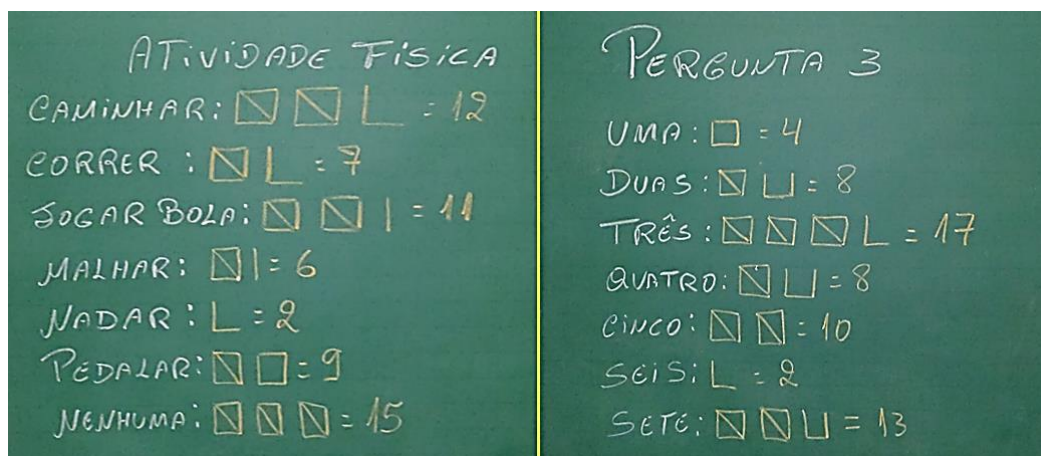 ATIVIDADE FISICA
CAMINHAR: = 12
CORRER : = 7
JOGAR BOLA: = 11
MALHAR: = 6
NADAR : = 2
PEDALAR: = 9
NENHUMA: = 15
PERGUNTA 3
UMA: = 4
DUAS: = 8
TRÊS: = 17
QUATRO: = 8
CINCO: = 10
SEIS: = 2
SETE: = 13